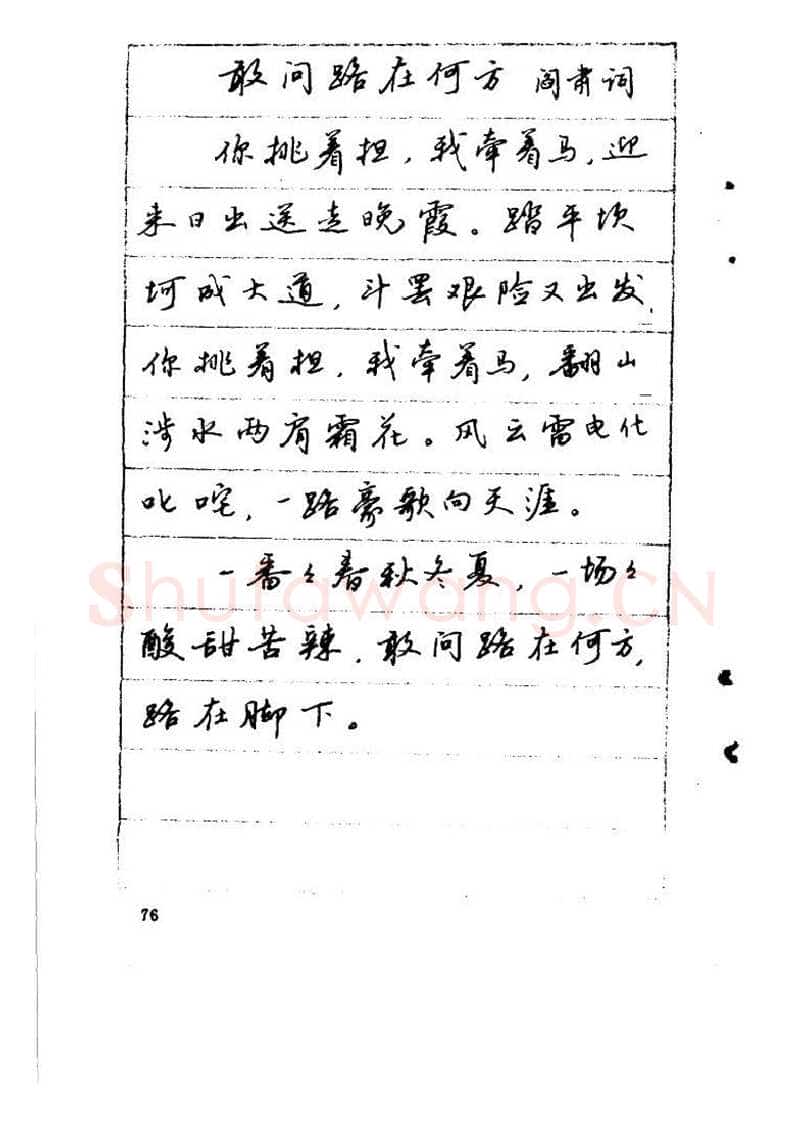 敢问路在何方 阎肃词
你挑着担，我牵着马，迎
来日出送走晚霞。踏平坎
坷成大道，斗罢艰险又出发，
你挑着担，我牵着马，翻山
涉水两肩霜花。风云雷电任
叱咤，一路豪歌向天涯。
一番々春秋冬夏，一场々
酸甜苦辣，敢问路在何方，
路在脚下。
Shufawang.CN
76